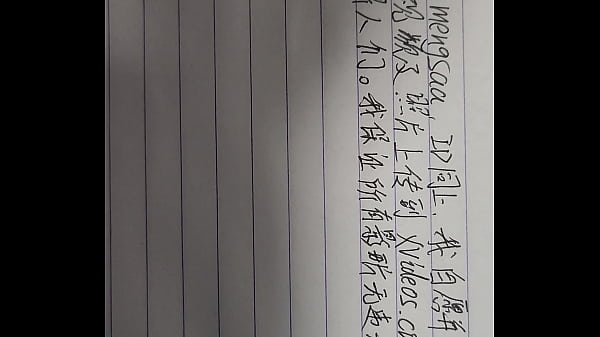 mengsaa, ID同上, 我自愿
视频及照片上传到 xvideos.c
人们。我保证所有影所无